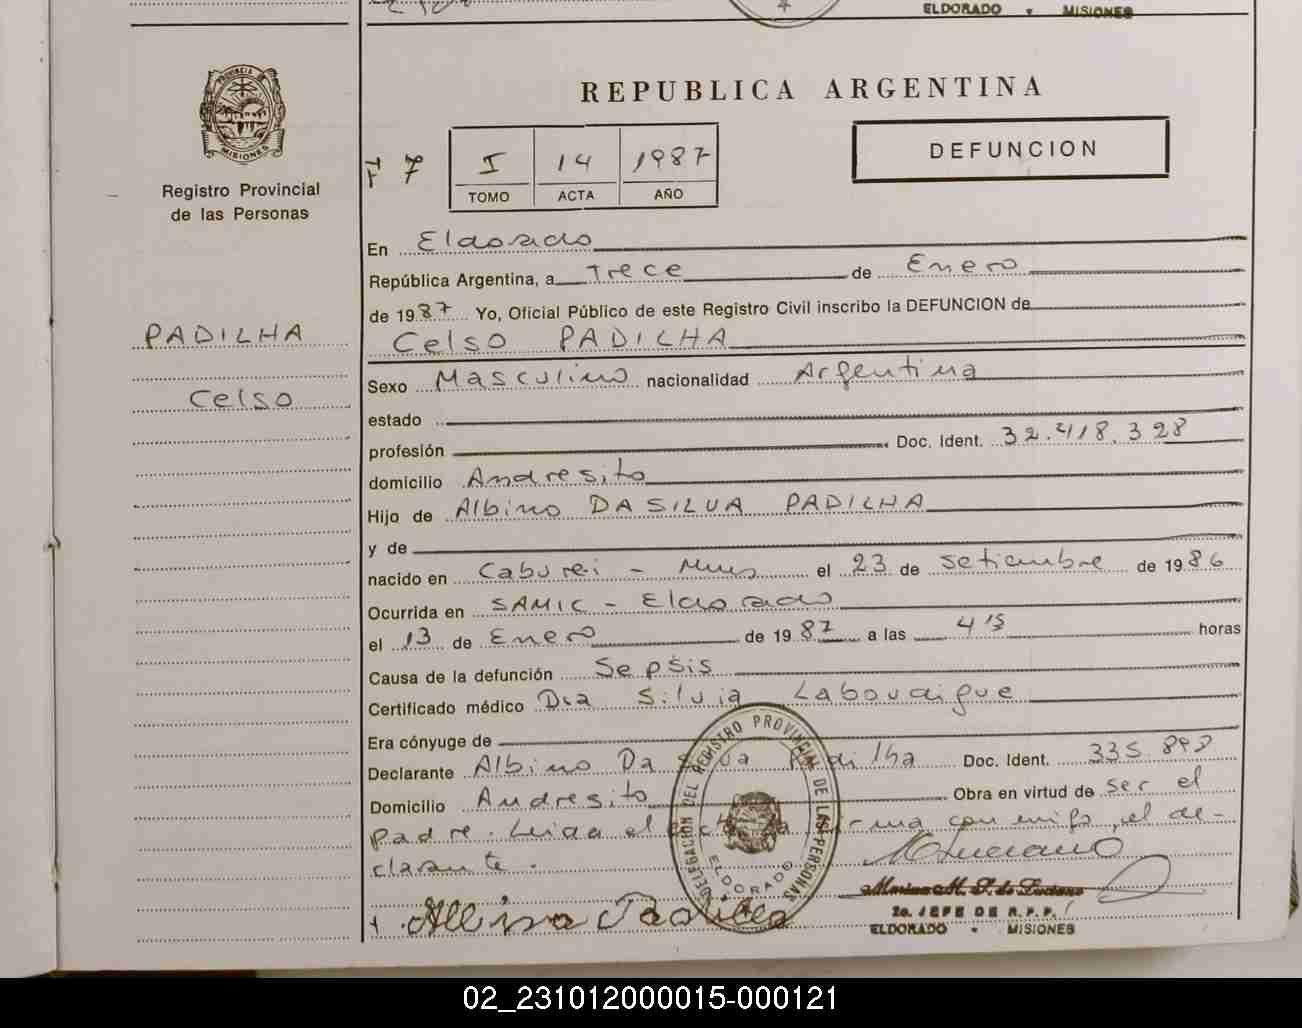 ELDORADO • MISIONES
PROVINCIA DE
MISIONES
Registro Provincial
de las Personas
PADILHA
Celso
REPUBLICA ARGENTINA
F 7
I 14 1987
TOMO ACTA AÑO
DEFUNCION
En Eldorado
República Argentina, a Trece de Enero
de 1987 Yo, Oficial Público de este Registro Civil inscribo la DEFUNCION de
Celso PADILHA
Sexo Masculino nacionalidad Argentina
estado
profesión Doc. Ident. 32.418.328
domicilio Andresito
Hijo de Albino DASILVA PADILHA
y de
nacido en Caburei - Mnes el 23 de Setiembre de 1986
Ocurrida en SAMIC - Eldorado
el 13 de Enero de 1987 a las 4 15 horas
Causa de la defunción Sepsis
Certificado médico Dra Silvia Labourdigue
Era cónyuge de
Declarante Albino Da Silva Padilha Doc. Ident. 335.892
Domicilio Andresito Obra en virtud de ser el
padre. Leida el acta la firma conmigo, el de-
clarante.
DELEGACION DEL REGISTRO PROVINCIAL DE LAS PERSONAS
ELDORADO
Albino Padilha
2o. JEFE DE R.P.P.
ELDORADO • MISIONES
02_231012000015-000121